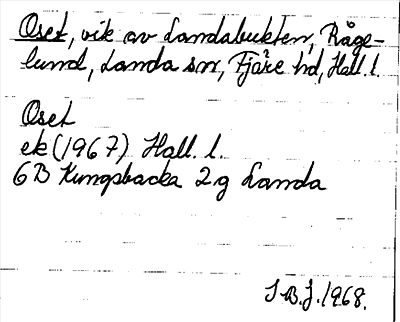 Oset, vik av Landabukten, Råge-
lund, Landa sn, Fjäre hd, Hall. l.
Oset
ek (1967) Hall. l.
6B Kungsbacka 2g Landa
I.B.J. 1968.